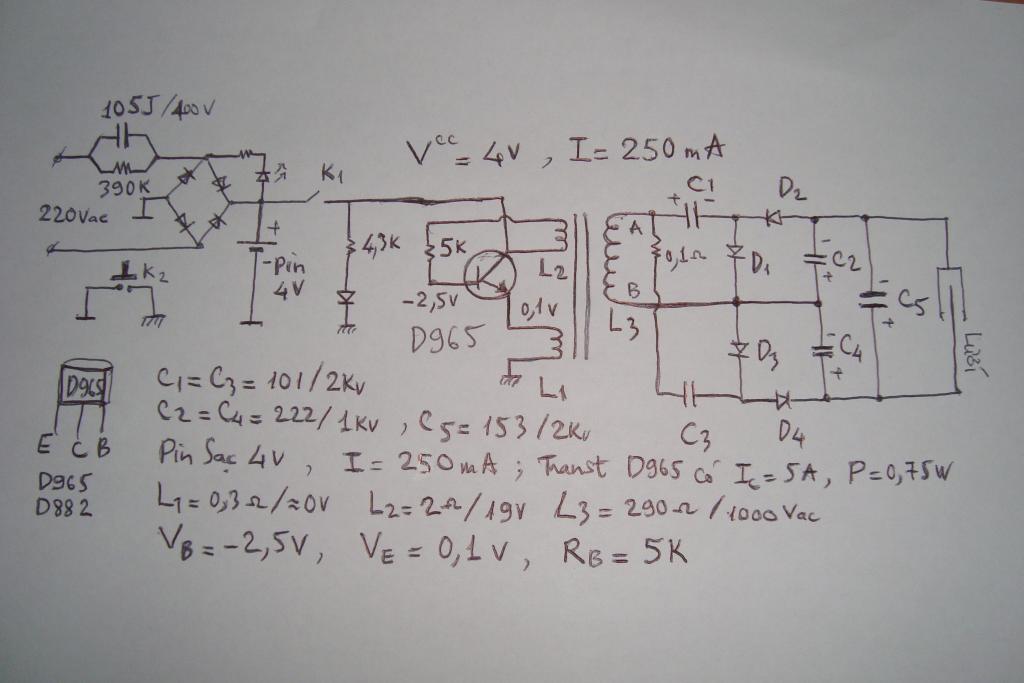 105J/400V
390K
220Vac
K2
+
-Pin
4V
K1
4,3K
Vcc = 4V , I = 250 mA
5K
-2,5V
0,1V
D965
L2
L1
L3
A
B
0,1Ω
+ C1 -
D2
D1
- C2 +
- C5 +
D3
- C4 +
C3
D4
Lưới
D965
E C B
D965
D882
C1 = C3 = 101/2Kv
C2 = C4 = 222/1Kv , C5 = 153/2Kv
Pin Sạc 4V , I = 250 mA ; Transt D965 có Ic = 5A, P = 0,75W
L1 = 0,3Ω/≈0V L2 = 2Ω/19V L3 = 290Ω/1000Vac
VB = -2,5V, VE = 0,1V, RB = 5K